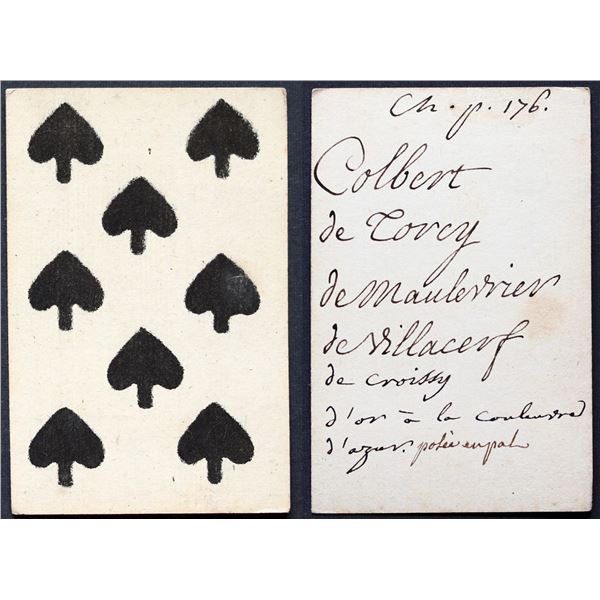 Ch. p. 176.
Colbert
de Torcy
de Maulevrier
de Villacerf
de Croissy
d'or à la couleuvre
d'azur. posée en pal